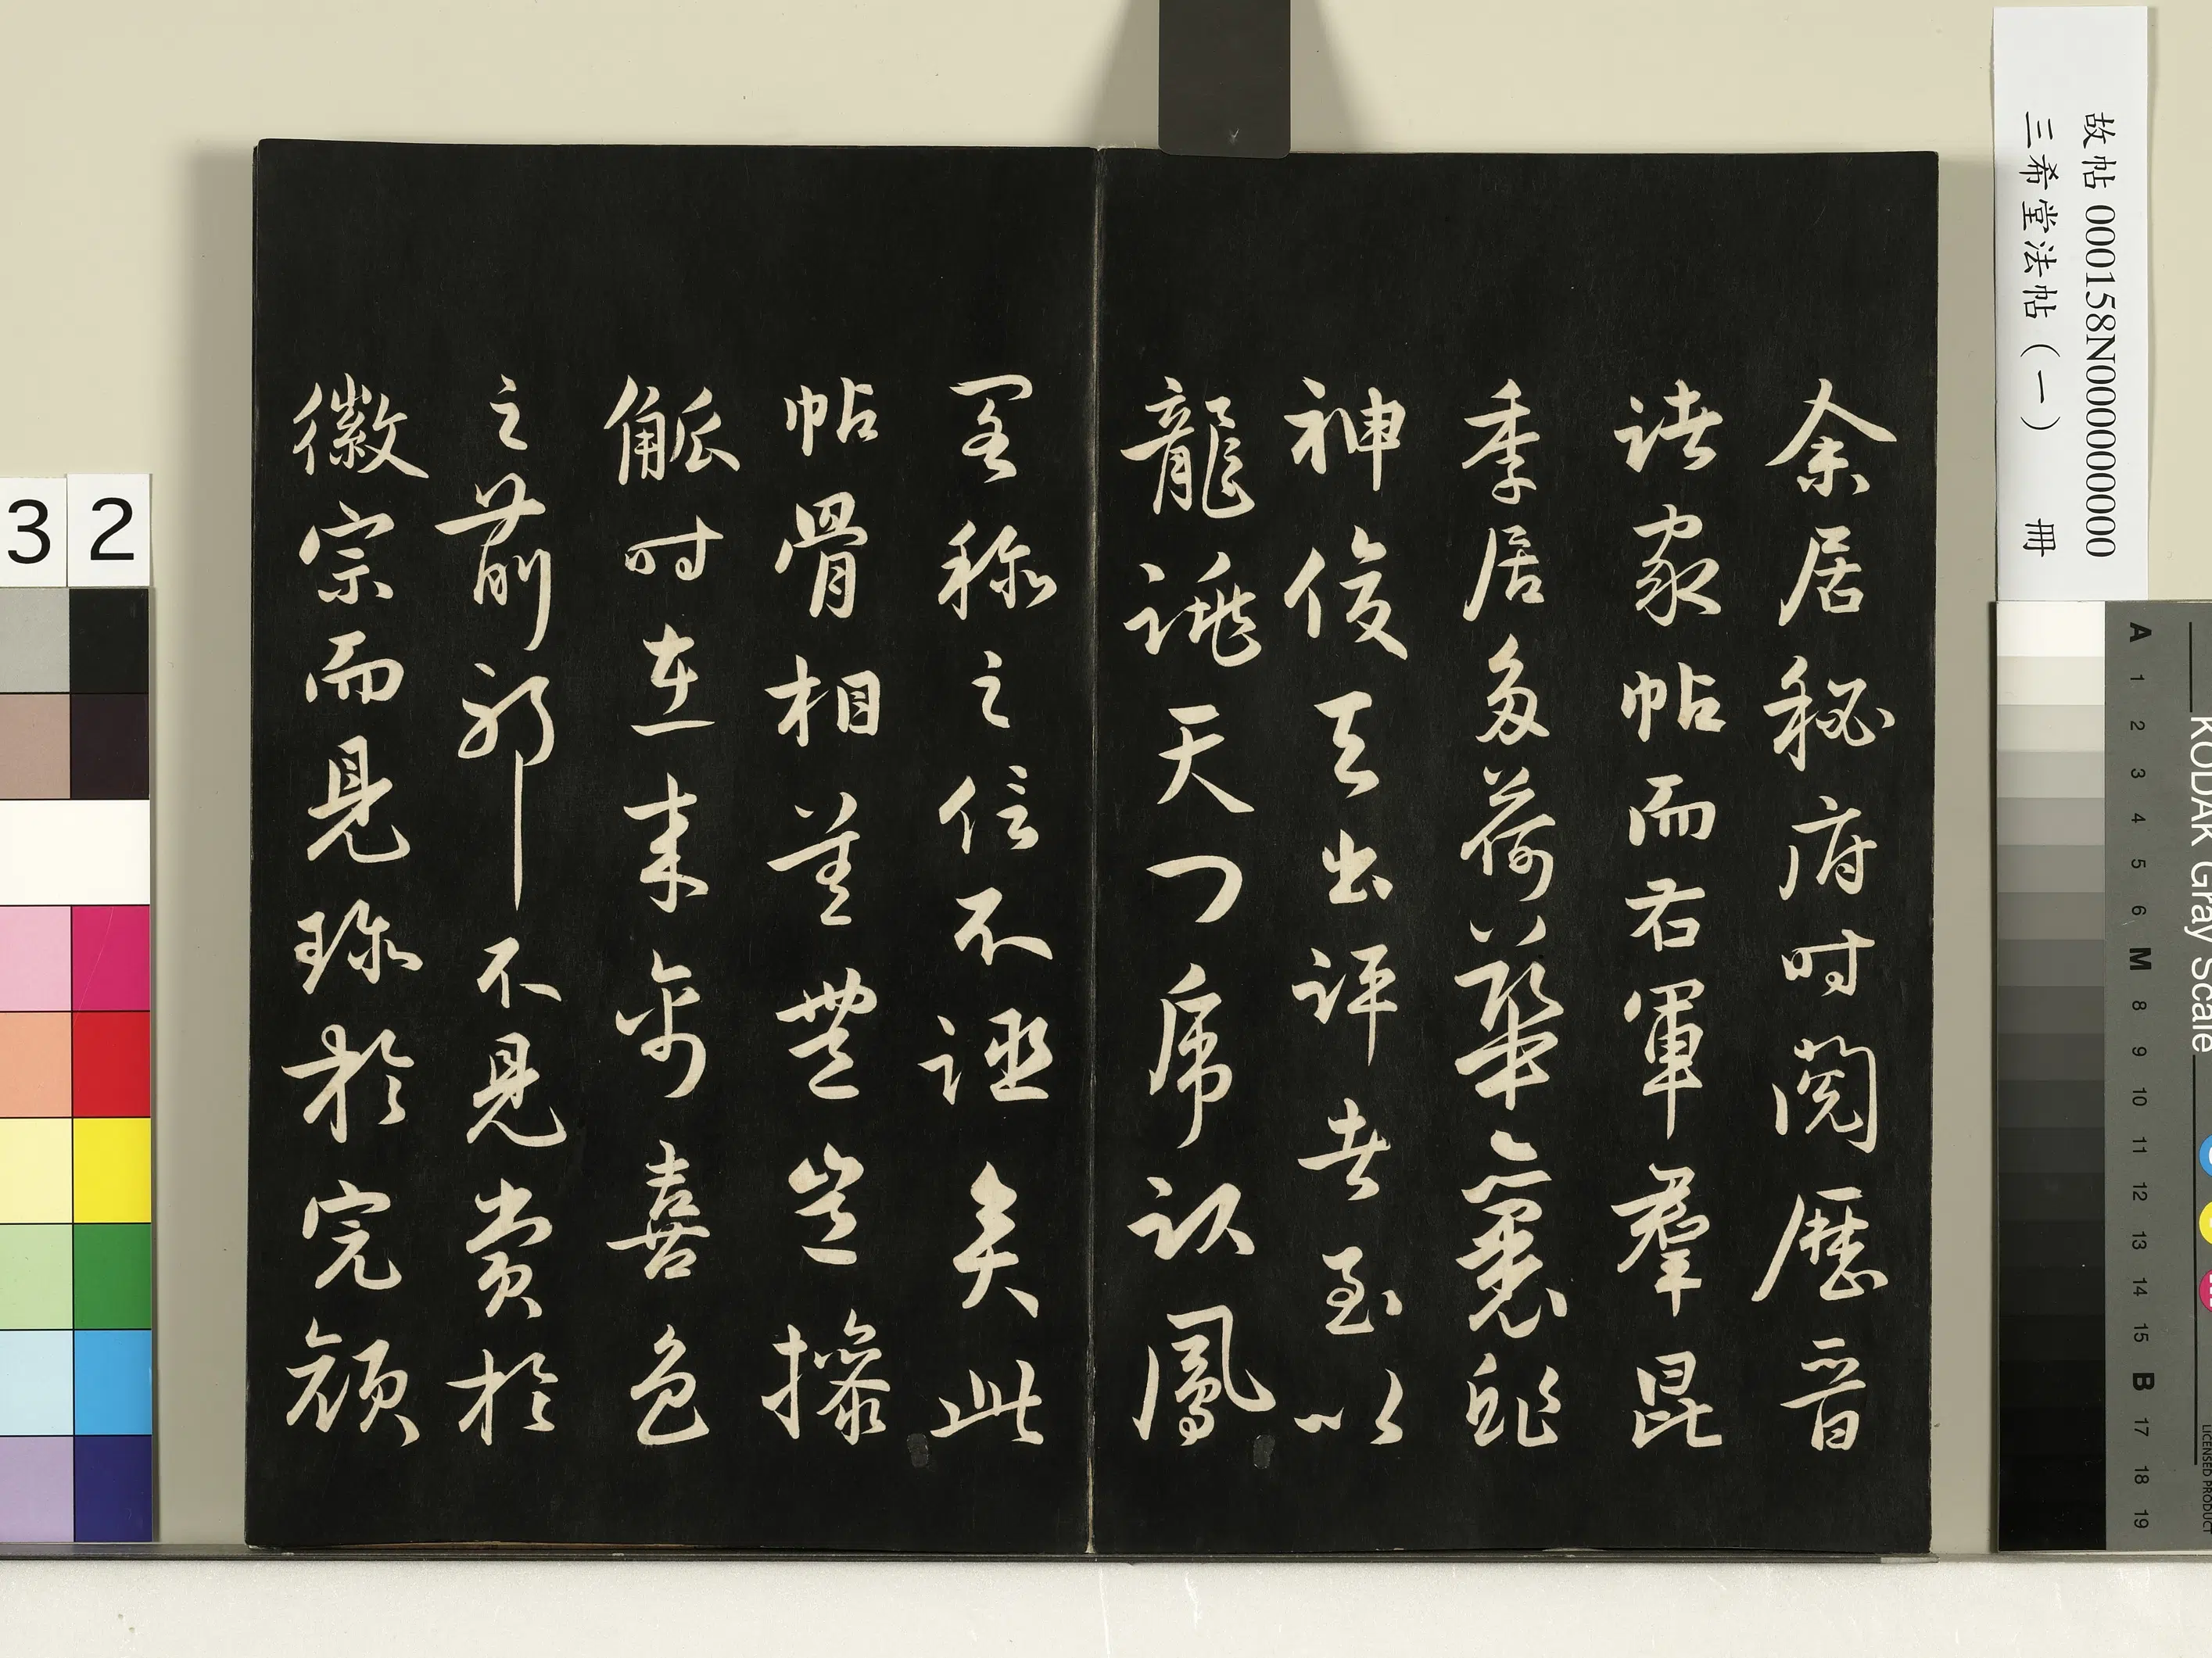 余居秘府時閱歷晉
諸家帖而右軍群昆
季居多荷華裹
神俊天出評者至以
龍跳天門虎臥鳳
閣稱之信不誣矣此
帖骨相差無豈操
觚時在來禽喜色
之前耶不見賞於
徽宗而見珍於完顏
故帖 000158N000000000
三希堂法帖（一） 冊
32
KODAK Gray Scale
A 1 2 3 4 5 6 M 8 9 10 11 12 13 14 15 B 17 18 19
LICENSED PRODUCT